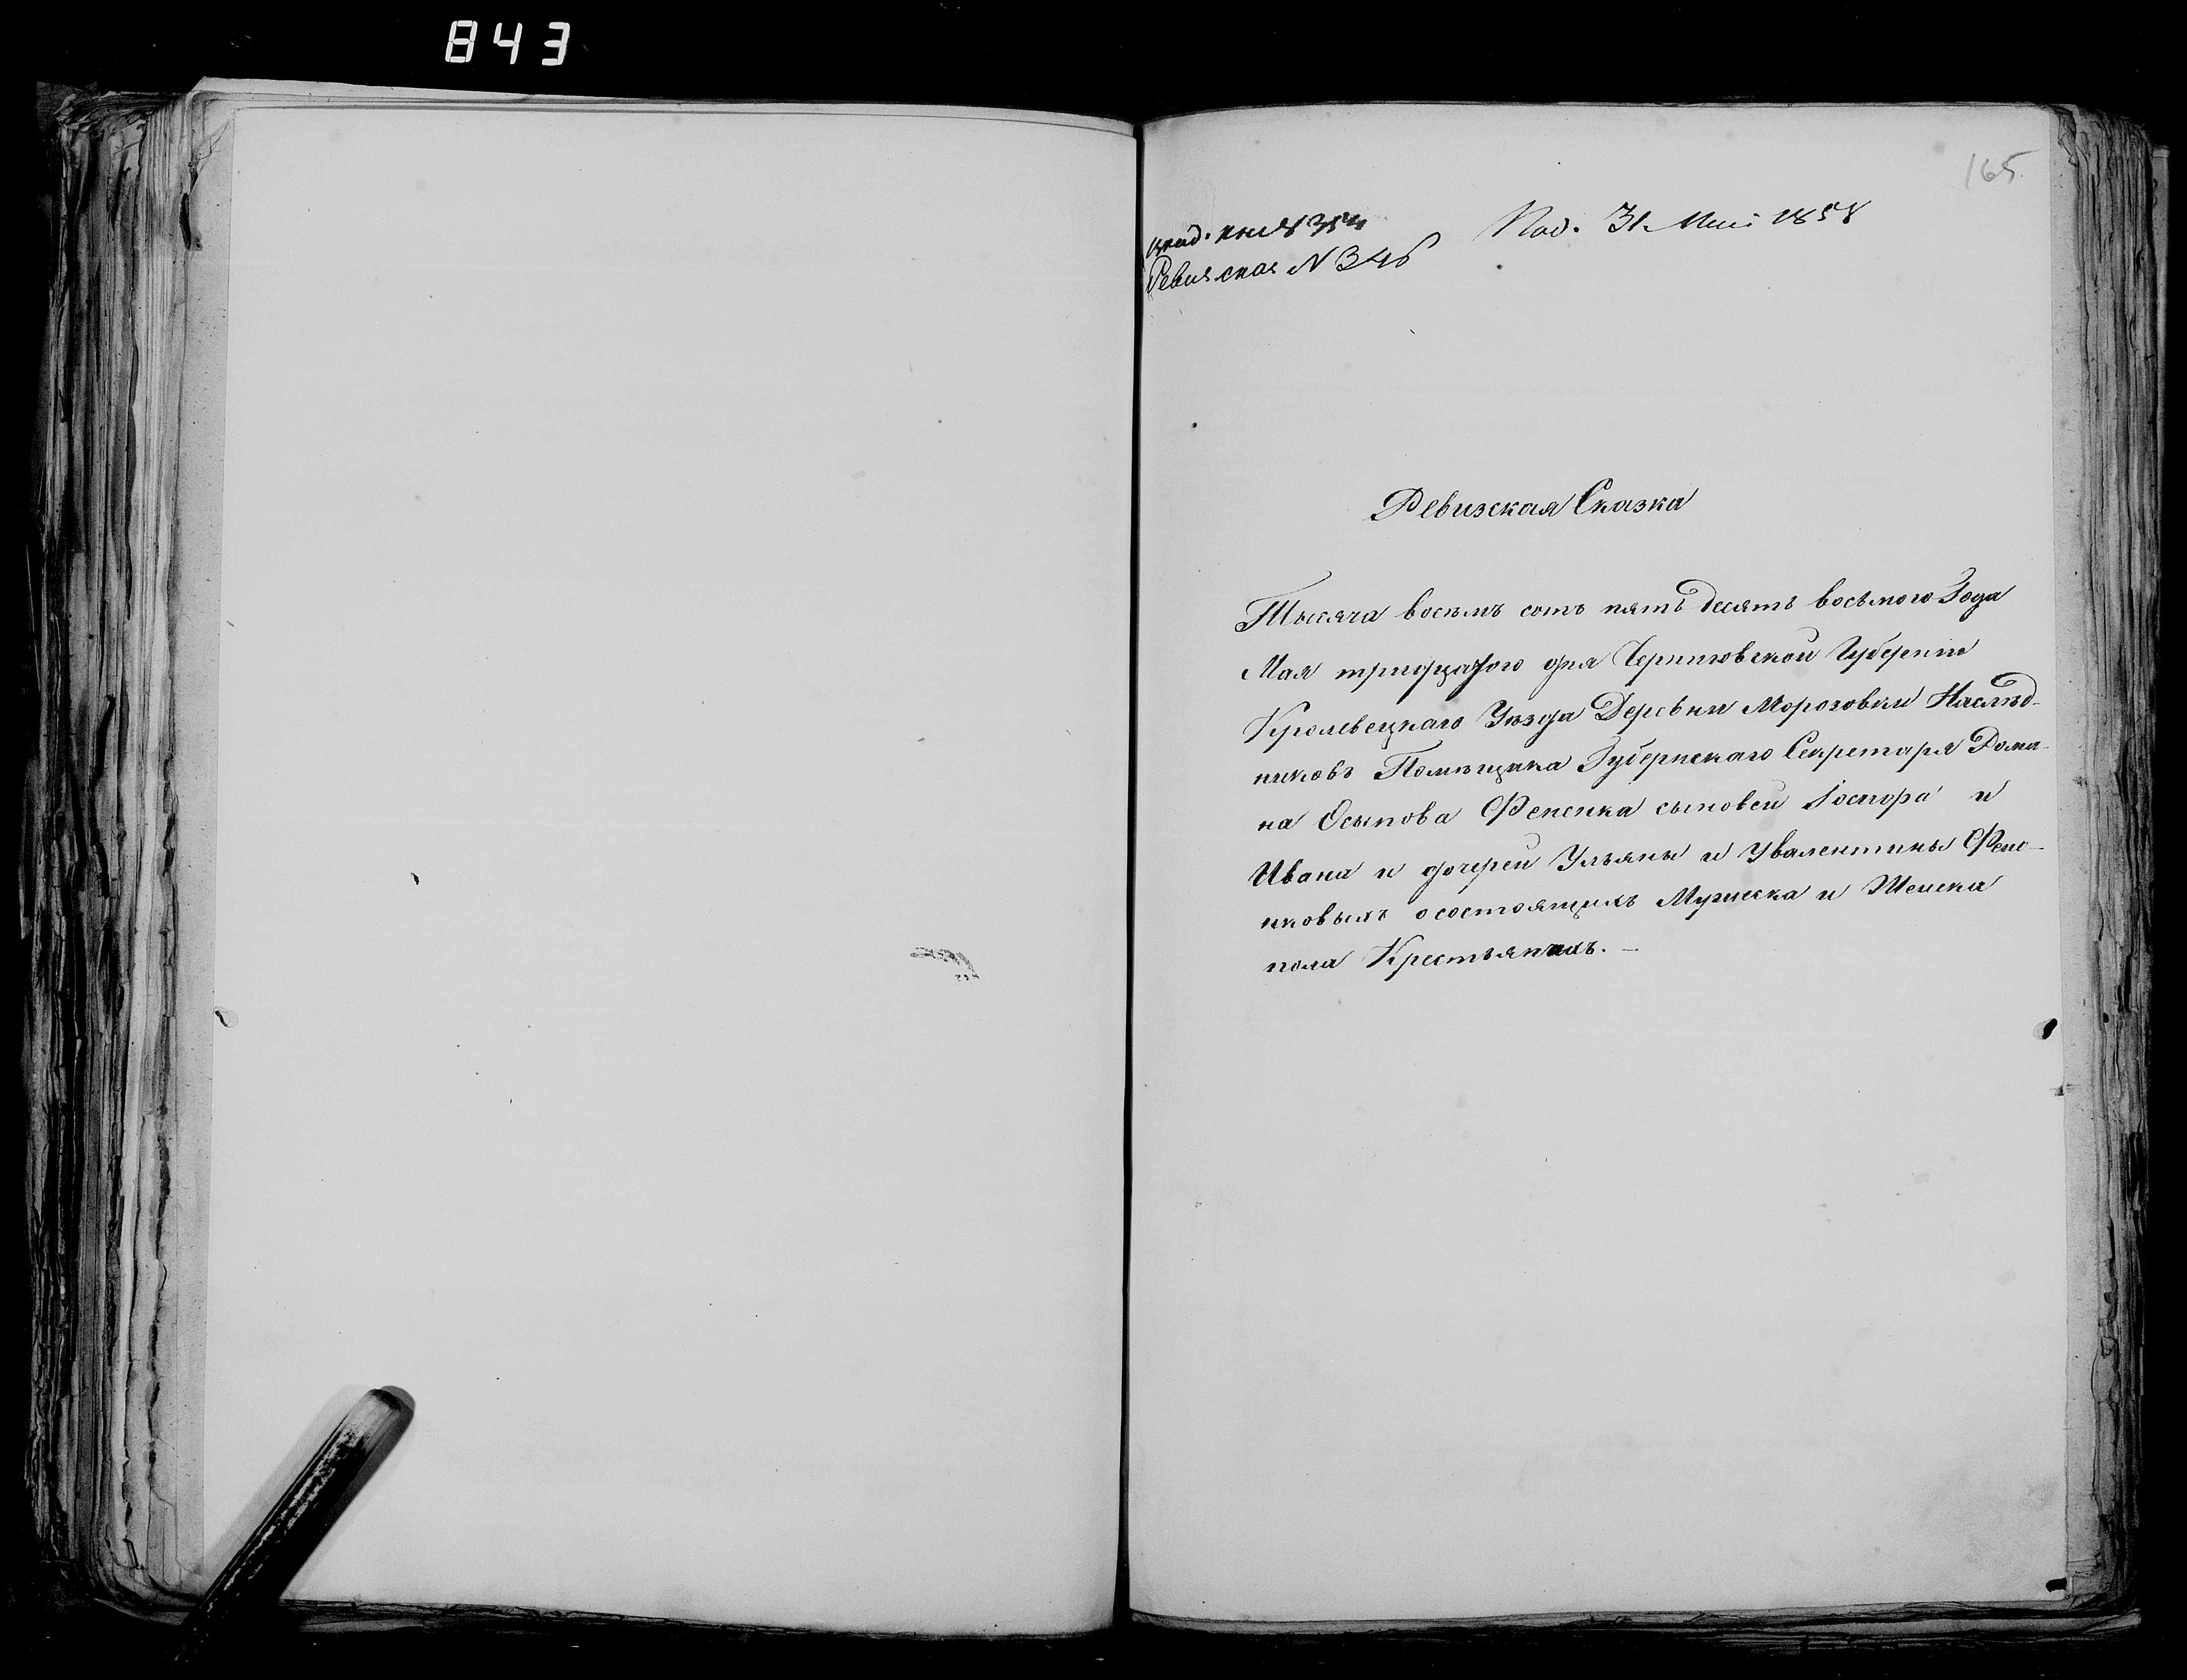 843
165
Под. 31 Мая 1858
вход. книг 354
Ревиз скаs N 346
Ревизская Сказка
Тысяча восемъ сотъ пятьдесятъ восьмого Года
Мая тридцатого дня Черниговской Губернии
Кролевецкаго Уезда Деревни Морозовки Наслѣд-
никовъ Помѣщика Губернскаго Секретаря Рома-
на Осипова Фененка сыновей Іосифа и
Ивана и дочерей Ульяны и Увалентины Фене-
нковыхъ осостоящихъ Мужеска и Женска
пола Крестьянахъ. —